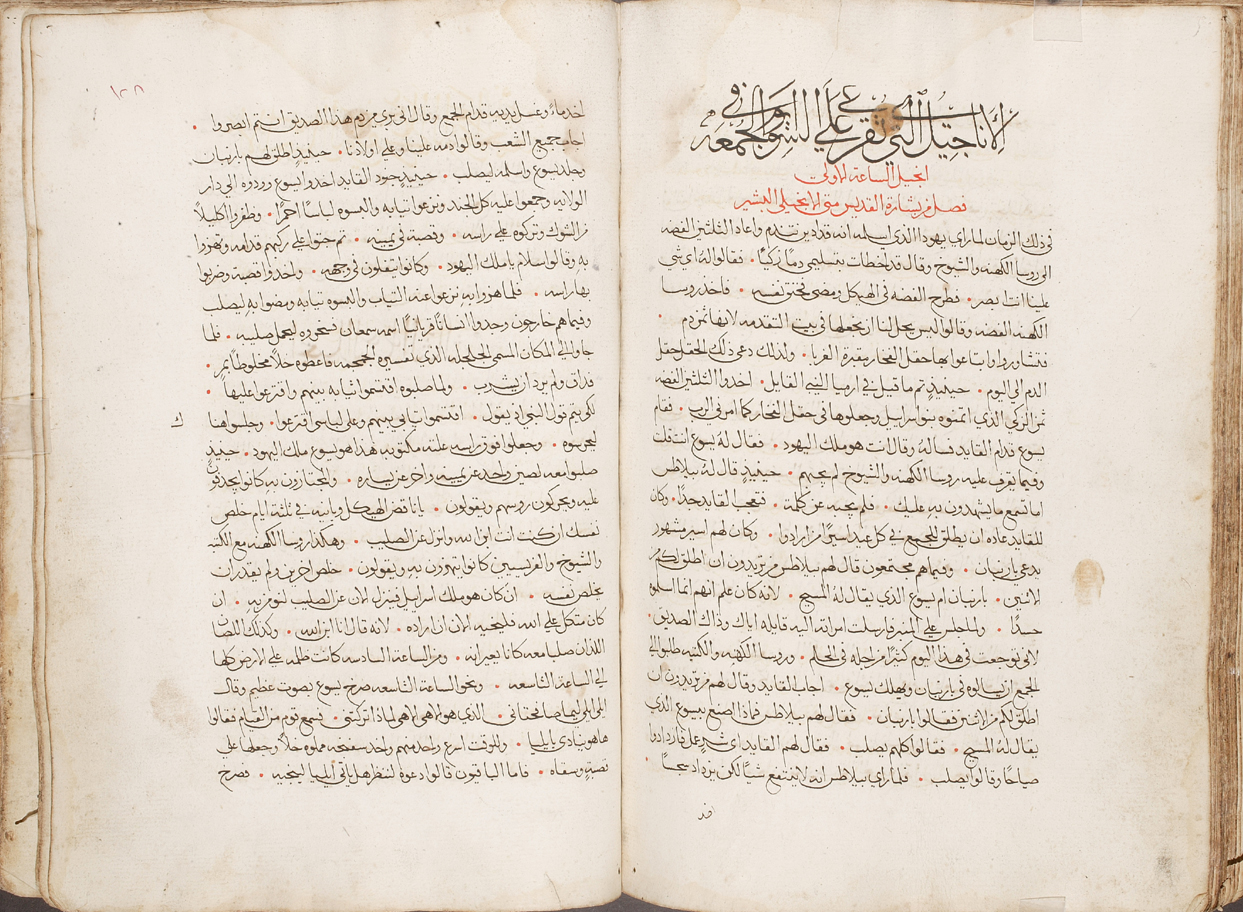 الاناجيل التي تقرى على السواعي في
الجمعه
انجيل الساعة الاولى
فصل من بشارة القديس متى الانجيلي البشير
في ذلك الزمان لما راي يهودا الذي اسلمه انه قد ادين تندم واعاد الثلثين الفضه
الي روسا الكهنه والشيوخ وقال قد اخطات بتسليمي دمًا زكيًا • فقالوا له اي شي
علينا انت ابصر • فطرح الفضه في الهيكل ومضى فخنق نفسه • فاخذ روسا
الكهنه الفضه وقالوا ليس يحل لنا ان نجعلها في بيت التقدمه لانها ثمن دم •
فتشاوروا وابتاعوا بها حقل الفخار مقبرة الغربا • ولذلك دعي ذلك الحقل حقل
الدم الي اليوم • حينيذٍ تم ما قيل في ارميا النبي القايل • اخذوا الثلثين الفضه
ثمن الزكي الذي اثمنوه بنو اسراييل وجعلوها في حقل الفخار كما امرني الرب • فقام
يسوع قدام القايد فساله وقال انت هو ملك اليهود • فقال له يسوع انت قلت
وفيما يقرف عليه روسا الكهنه والشيوخ لم يجبهم • حينيذٍ قال له بيلاطس
اما تسمع ما يشهدون به عليك • فلم يجبه عن كلمة • فتعجب القايد جدًا • وكان
للقايد عاده ان يطلق للجمع في كل عيد اسيرًا من ارادوا • وكان لهم اسير مشهور
يدعي باربنان • وفيما هم مجتمعون قال لهم بيلاطس من تريدون ان اطلق لكم من
الاثنين • باربنان ام يسوع الذي يقال له المسيح • لانه كان علم انهم انما اسلموه
حسدًا • ولما جلس علي المنبر فارسلت امراته اليه قايله اياك وذاك الصديق •
لاني توجعت في هذا اليوم كثيرًا من اجله في الحلم • وروسا الكهنه والكتبه طلبوا الي
الجمع ان يسالوه في باربنان ويهلك يسوع • اجاب القايد وقال لهم من تريدون ان
اطلق لكم من الاثنين فقالوا باربنان • فقال لهم بيلاطس فماذا اصنع بيسوع الذي
يقال له المسيح • فقالوا كلهم يصلب • فقال لهم القايد اي شرٍ عمل فازدادوا
صياحًا وقالوا يصلب • فلما راي بيلاطس انه لا ينتفع شيًا لكن يزداد سجسًا
١٢٨
اخذ ماءً وغسل يديه قدام الجمع وقال انني بري من دم هذا الصديق انتم ابصروا •
اجاب جميع الشعب وقالوا دمه علينا وعلي اولادنا • حينيذٍ اطلق لهم باربنان
وجلد يسوع واسلمه ليصلب • حينيذٍ جنود القايد اخذوا يسوع وردوه الي دار
الولاية وجمعوا عليه كل الجند ونزعوا ثيابه والبسوه لباسًا احمرًا • وظفروا اكليلًا
من الشوك وتركوه علي راسه • وقصبة في يمينه • ثم جثوا علي ركبهم قدامه وتهزوا
بهِ وقالوا سلام يا ملك اليهود • وكانوا يتفلون في وجهه • واخذوا قصبة وضربوا
بها راسه • فلما هزوا بهِ نزعوا عنه الثياب والبسوه ثيابه ومضوا بهِ ليصلب
وفيما هم خارجون وجدوا انسانًا قريانيًا اسمه سمعان فسخروه ليحمل صليبه • فلما
جاوا الي المكان المسمي الجلجله الذي تفسيره الجمجمه فاعطوه خلًا مخلوطًا بمر •
فذاق ولم يرد ان يشرب • ولما صلبوه اقتسموا ثيابه بينهم واقترعوا عليها •
لكي يتم قول النبي اذ يقول • اقتسموا ثيابي بينهم وعلي لباسي اقترعوا • وجلسوا هنا
ليحرسوه • وجعلوا فوق راسه علته مكتوبه هذا هو يسوع ملك اليهود • حينيذٍ
صلبوا معه لصين واحد عن يمينه واخر عن يساره • والمجتازون بهِ كانوا يجدفون
عليه ويحركون روسهم ويقولون • يا ناقض الهيكل وبانيه في ثلثة ايام خلص
نفسك ان كنت انت ابن الله وانزل عن الصليب • وهكذا روسا الكهنه مع الكتبه
والشيوخ والفريسيين كانوا يتهزون بهِ ويقولون • خلص اخرين ولم يقدر ان
يخلص نفسه • ان كان هو ملك اسراييل فينزل الان عن الصليب لنومن بهِ • ان
كان متكل علي الله فلينجيه الان ان اراده • لانه قال انا ابن الله • وكذلك اللصان
اللذان صلبا معه كانا يعيرانه • ومن الساعة السادسه كانت ظلمه علي الارض كلها
الي الساعة التاسعه • ونحو الساعة التاسعه صرخ يسوع بصوت عظيم وقال
ايلي ايلي ليما صافختاني • الذي هو الاهي الاهي لماذا تركتني • فسمع قوم من القيام فقالوا
ها هو ينادي بايليا • وللوقت اسرع واحد منهم واخذ سفنجه مملوه خلًا وجعلها علي
قصبةٍ وسقاه • فاما الباقيون قالوا دعوه لننظر هل ياتي ايليا لينجيه • فصرخ